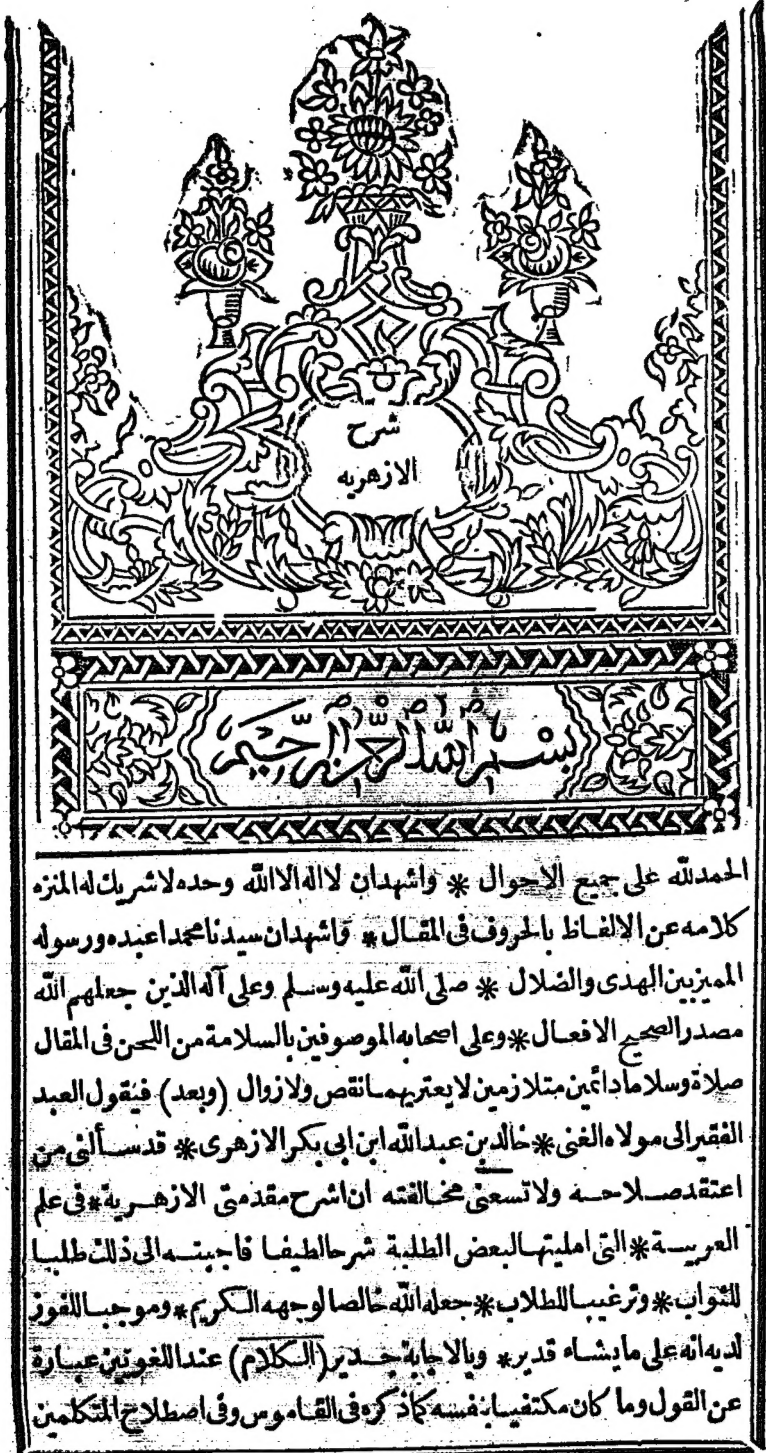 شرح
الازهريه
بسم الله الرحمن الرحيم
الحمدلله على جميع الاحوال * واشهدان لااله الاالله وحده لاشريك له المنزه
كلامه عن الالفاظ بالحروف فى المقال * واشهدان سيدنا محمدا عبده ورسوله
المميز بين الهدى والضلال * صلى الله عليه وسلم وعلى آله الذين جعلهم الله
مصدر الصحيح الافعال * وعلى اصحابه الموصوفين بالسلامة من اللحن فى المقال
صلاة وسلاما دائمين متلازمين لايعتريهما نقص ولازوال (وبعد) فيقول العبد
الفقير الى مولاه الغنى * خالدبن عبدالله ابن ابى بكر الازهرى * قدسألنى من
اعتقد صلاحه ولاتسعنى مخالفته ان اشرح مقدمتى الازهرية * فى علم
العربية * التى امليتها لبعض الطلبة شرحا لطيفا فاجبته الى ذلك طلبا
للثواب * وترغيبا للطلاب * جعله الله خالصا لوجهه الكريم * وموجبا للفوز
لديه انه على مايشاء قدير * وبالاجابة جدير (الكلام) عند اللغويين عبارة
عن القول وما كان مكتفيا بنفسه كماذكره فى القاموس وفى اصطلاح المتكلمين